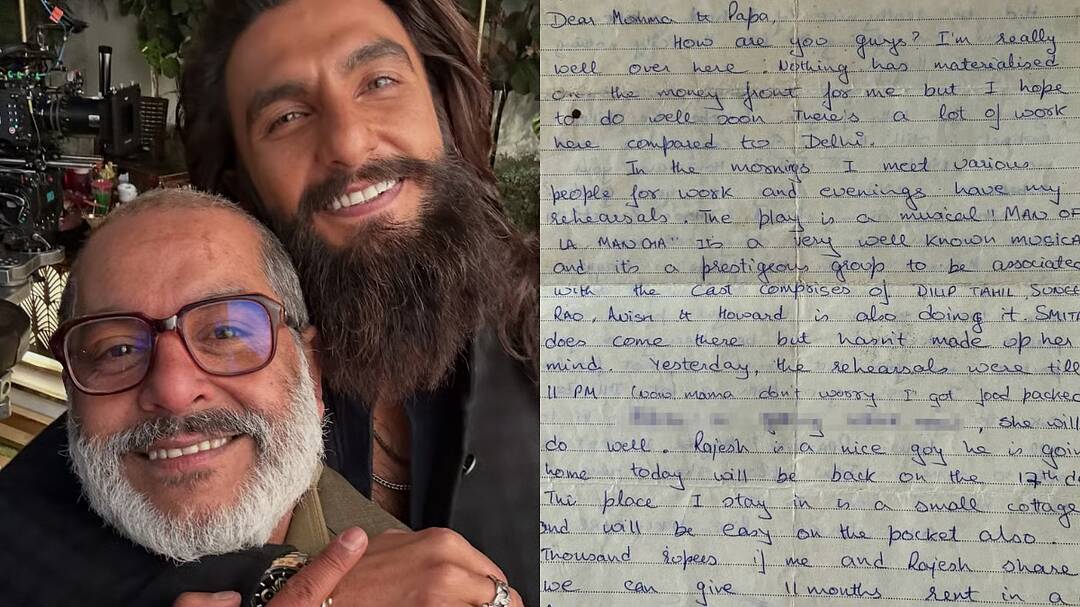 Dear Momma & Papa,
How are you guys? I'm really
well over here. Nothing has materialised
on the money front for me but I hope
to do well soon There's a lot of work
here compared to Delhi.
In the mornings I meet various
people for work and evenings have my
rehearsals. The play is a musical "MAN OF
LA MANCHA" Its a very well known MUSICA
and its a prestigeous group to be associated
with the cast comprises of DILIP TAHIL,
RAO, & Howard is also doing it. SMITA
does come there but hasn't made up her
mind. Yesterday, the rehearsals were till
11 PM (now mama don't worry I got food packed
, she will
do well. Rajesh is a nice guy he is goin
home today will be back on the 17th
This place I stay in is a small cottage
and will be easy on the pocket also.
Thousand rupees if me and Rajesh share
we can give 11 months rent in a